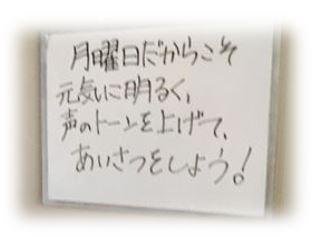 月曜日だからこそ
元気に明るく、
声のトーンを上げて、
あいさつをしよう!